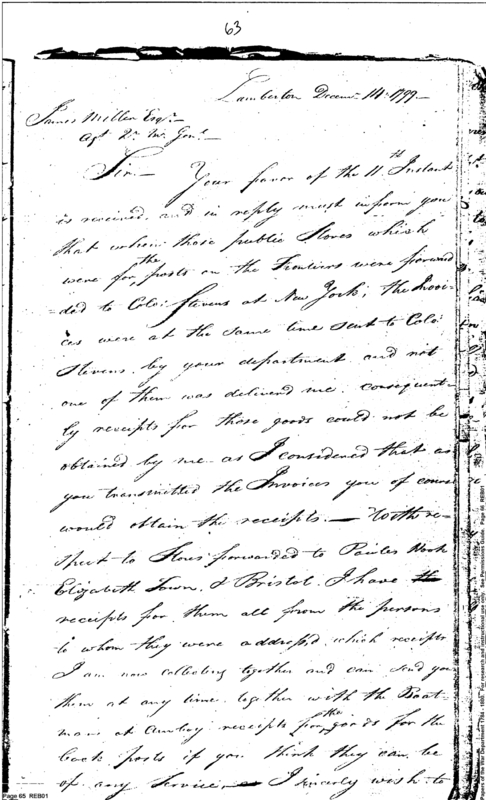 63
Lamberton Decemr 14. 1799—
James Miller Esqr.—
Agt Qr. Mr. Genl.—
Sir— Your favor of the 11th Instant
is received and in reply must inform you
that when those public Stores which
were for the posts on the Frontiers were forward
-ded to Colo. Stevens at New York; the Invoi-
ces were at the same time sent to Colo.
Stevens by your department and not
one of them was deliverd me. consequent-
ly receipts for those goods could not be
obtained by me as I considered that as
you transmitted the Invoices you of course
would obtain the receipts.— With re-
spect to Stores forwarded to Paules Hook
Elizabeth Town, & Bristol. I have the
receipts for them all from the persons
to whom they were addressd, which receipts
I am now collecting together and can send you
them at any time, together with the Boat-
mans at Amboy receipts for the goods for the
back posts if you think they can be
of any Service.— I sincerly wish to
Page 65 REB01
Papers of the War Department 1784 - 1800. For research and instructional use only. See Permissions Guide. Page 65, REB01